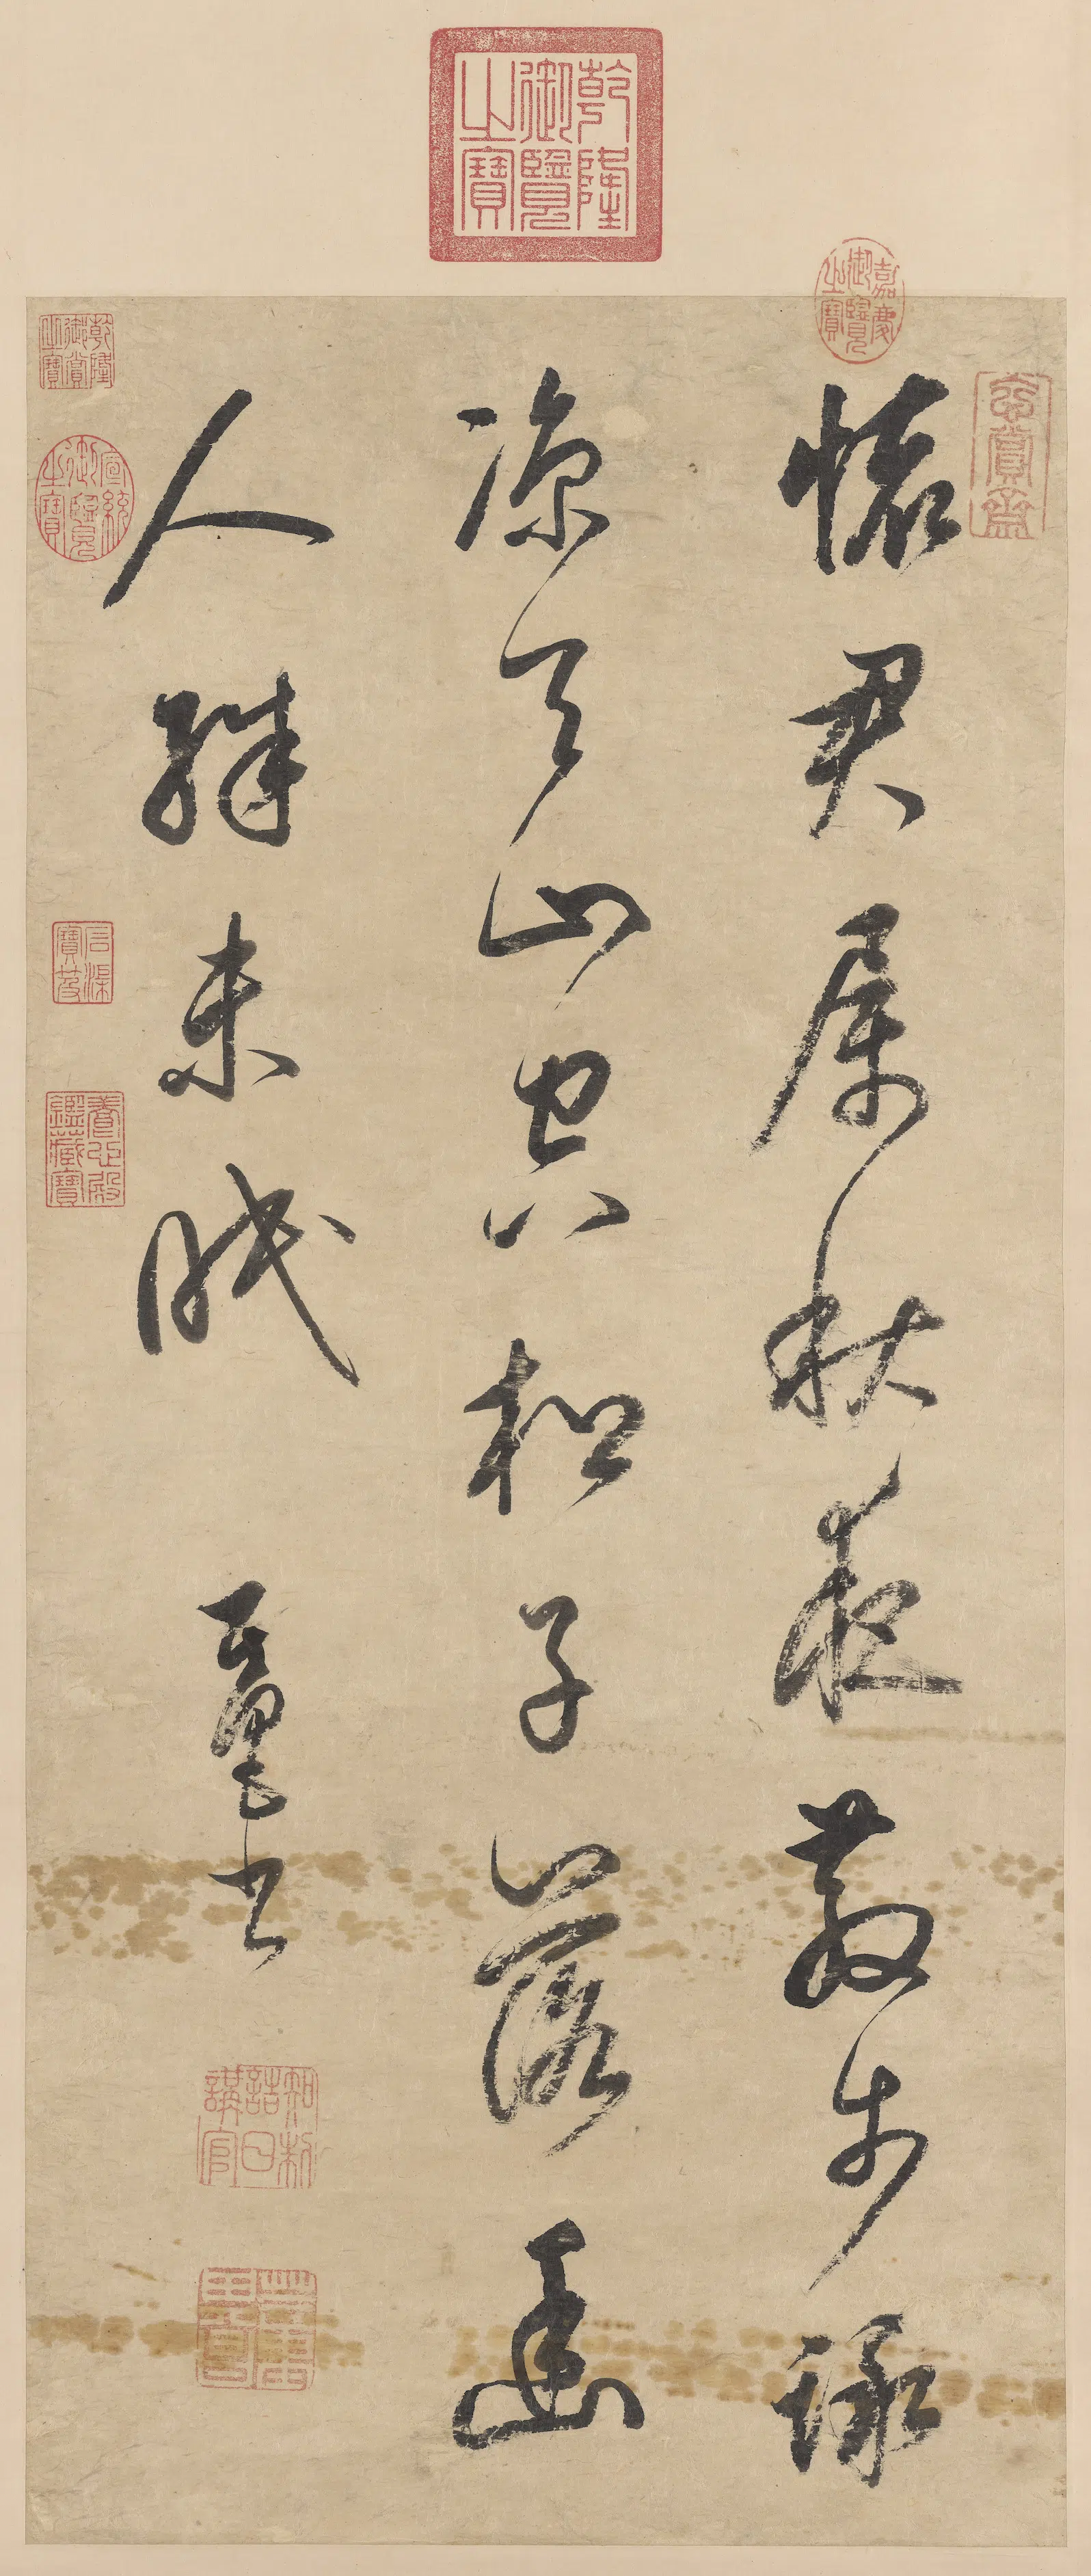 乾隆御覽之寶
嘉慶御覽之寶
玄賞齋
懷君屬秋夜散步詠
涼天山空松子落幽
人殊未眠 其昌書
知制誥日講官
董其昌
乾隆御賞之寶
宣統御覽之寶
石渠寶笈
養心殿鑑藏寶